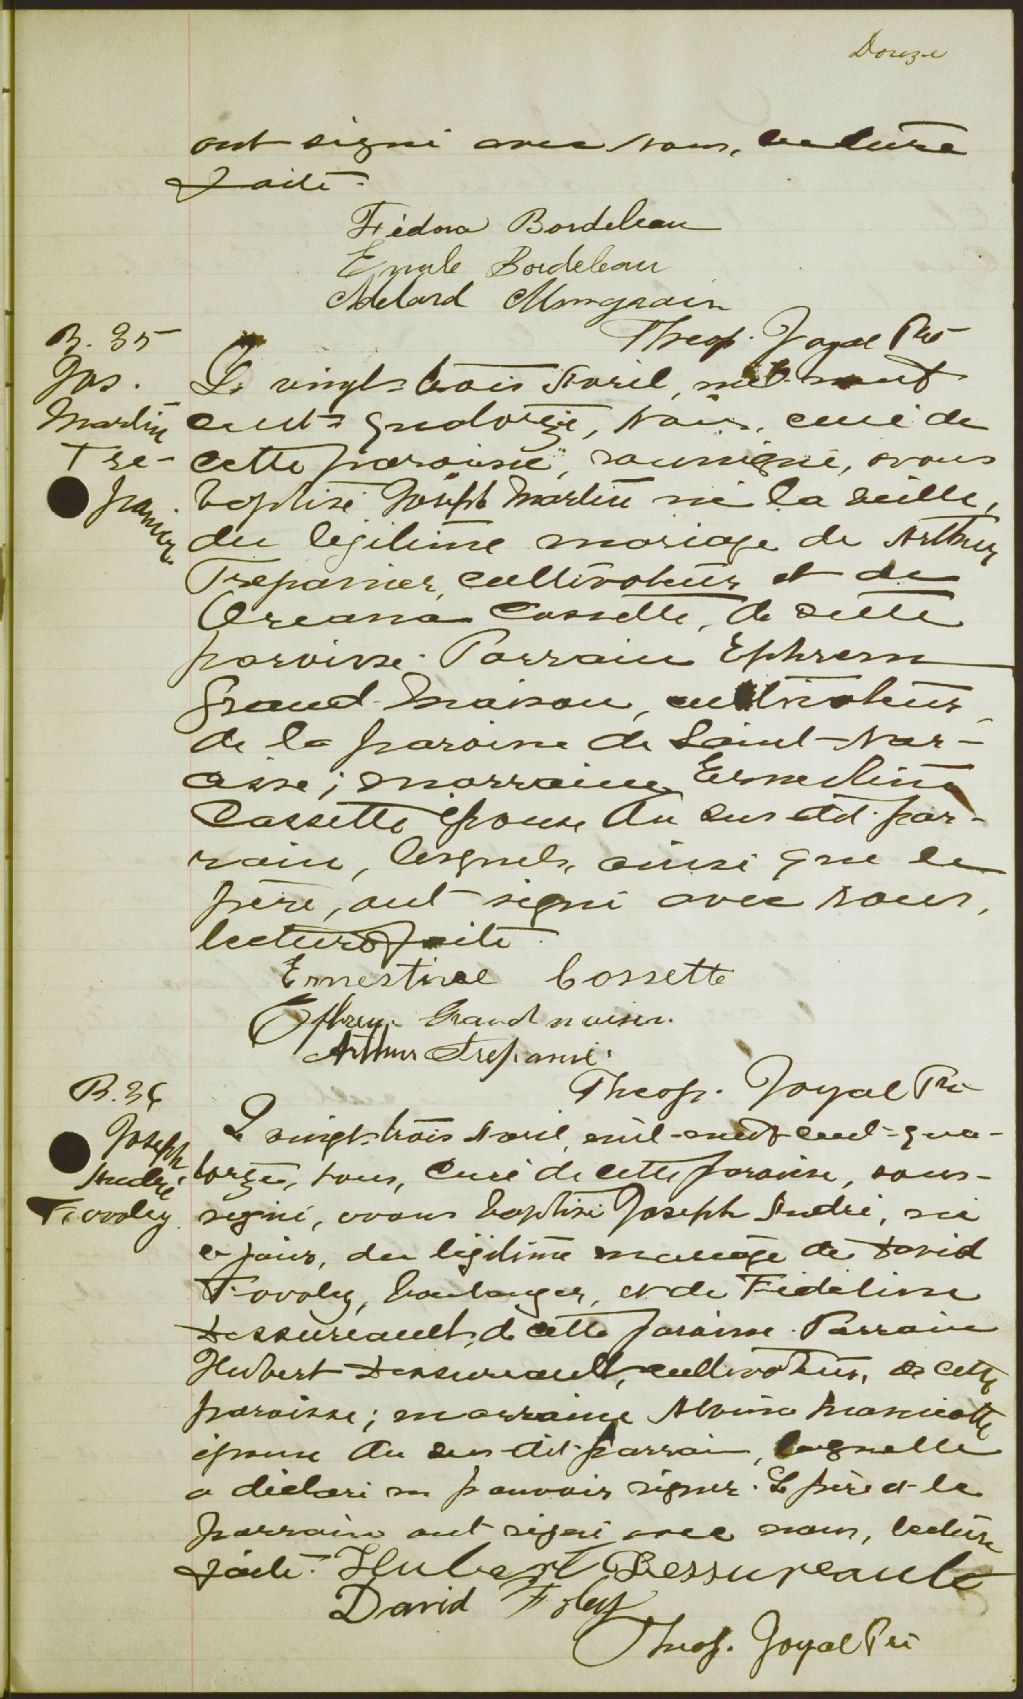 Douze
ont signé avec nous, lecture
faite.
Fédora Bordeleau
Emile Bordeleau
Adelard Mongrain
Theop. Joyal Ptre
B. 35
Jos.
Martin
Tre-
panier
Le vingt-trois Avril, mil-neuf
cent-quatorze, Nous, curé de
cette paroisse, soussigné, avons
baptisé Joseph Martin né la veille,
du légitime mariage de Arthur
Trepanier, cultivateur et de
Oreana Cossette, de cette
paroisse. Parrain Ephrem
Grand-Maison, cultivateur
de la paroisse de Saint-Nar-
cisse; marraine Ernestine
Cossette épouse du sus dit par-
rain, lesquels ainsi que le
père, ont signé avec nous,
lecture faite.
Ernestine Cossette
Ephrem Grandmaison
Arthur Trepanié
Theop. Joyal Ptre
B. 36
Joseph
André
Le vingt-trois Avril, mil-neuf-cent-qua-
torze, nous, Curé de cette paroisse, sous-
signé, avons baptisé Joseph André, né
ce jour, du légitime mariage de David
boulanger, et de Fidéline
Dessureault, de cette paroisse. Parrain
Hubert Dessureault, cultivateur, de cette
paroisse; marraine Alvina Marcotte
épouse du sus-dit-parrain, laquelle
a déclaré ne pouvoir signer. Le père et le
parrain ont signé avec nous, lecture
faite. Hubert Dessureault
David Foley
Theop. Joyal Ptre